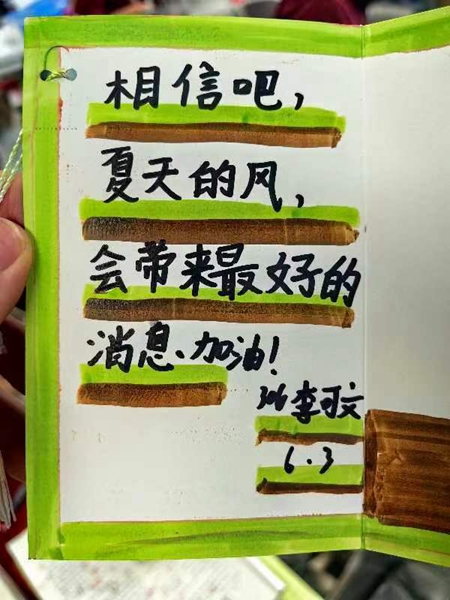 相信吧，
夏天的风，
会带来最好的
消息、加油！
316李可文
6.3